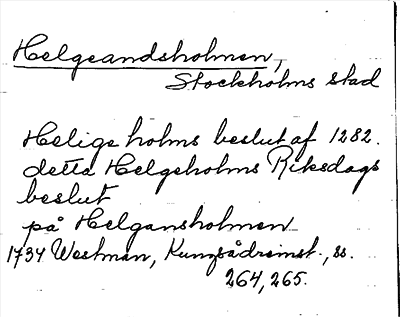 Helgeandsholmen,
Stockholms stad
Helige holms beslut af 1282.
detta Helgeholms Riksdags
beslut
på Helgansholmen
1734 Westman, Kungsådremst., ss.
264, 265.